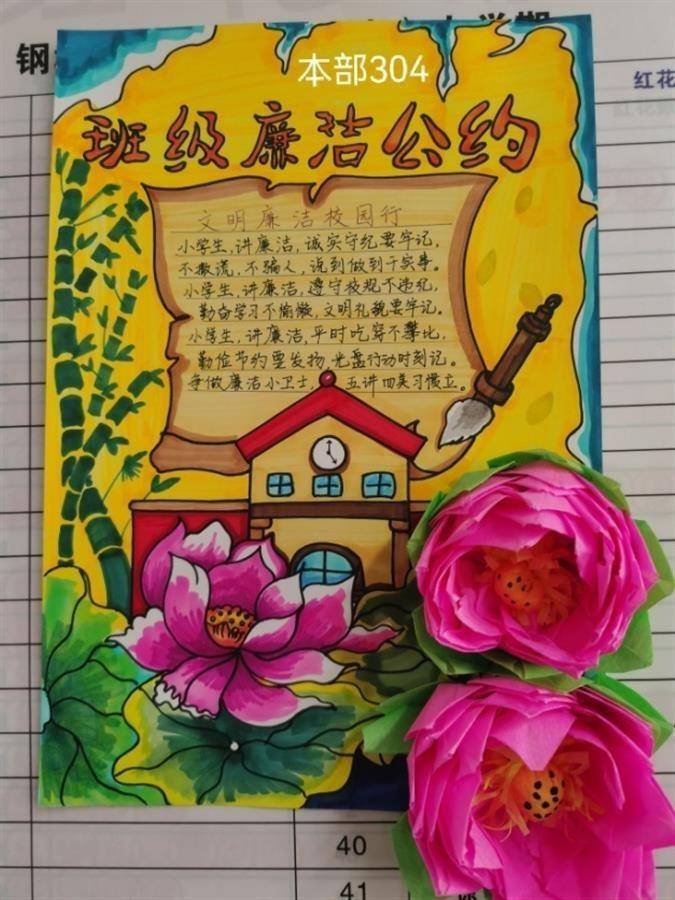 钢
红花
本部304
班级廉洁公约
文明廉洁校园行
小学生,讲廉洁,诚实守纪要牢记,
不撒谎,不骗人,说到做到干实事。
小学生,讲廉洁,遵守校规不违纪,
勤奋学习不偷懒,文明礼貌要牢记。
小学生,讲廉洁,平时吃穿不攀比,
勤俭节约要发扬,光盘行动时刻记。
争做廉洁小卫士,五讲四美习惯立。
40
41